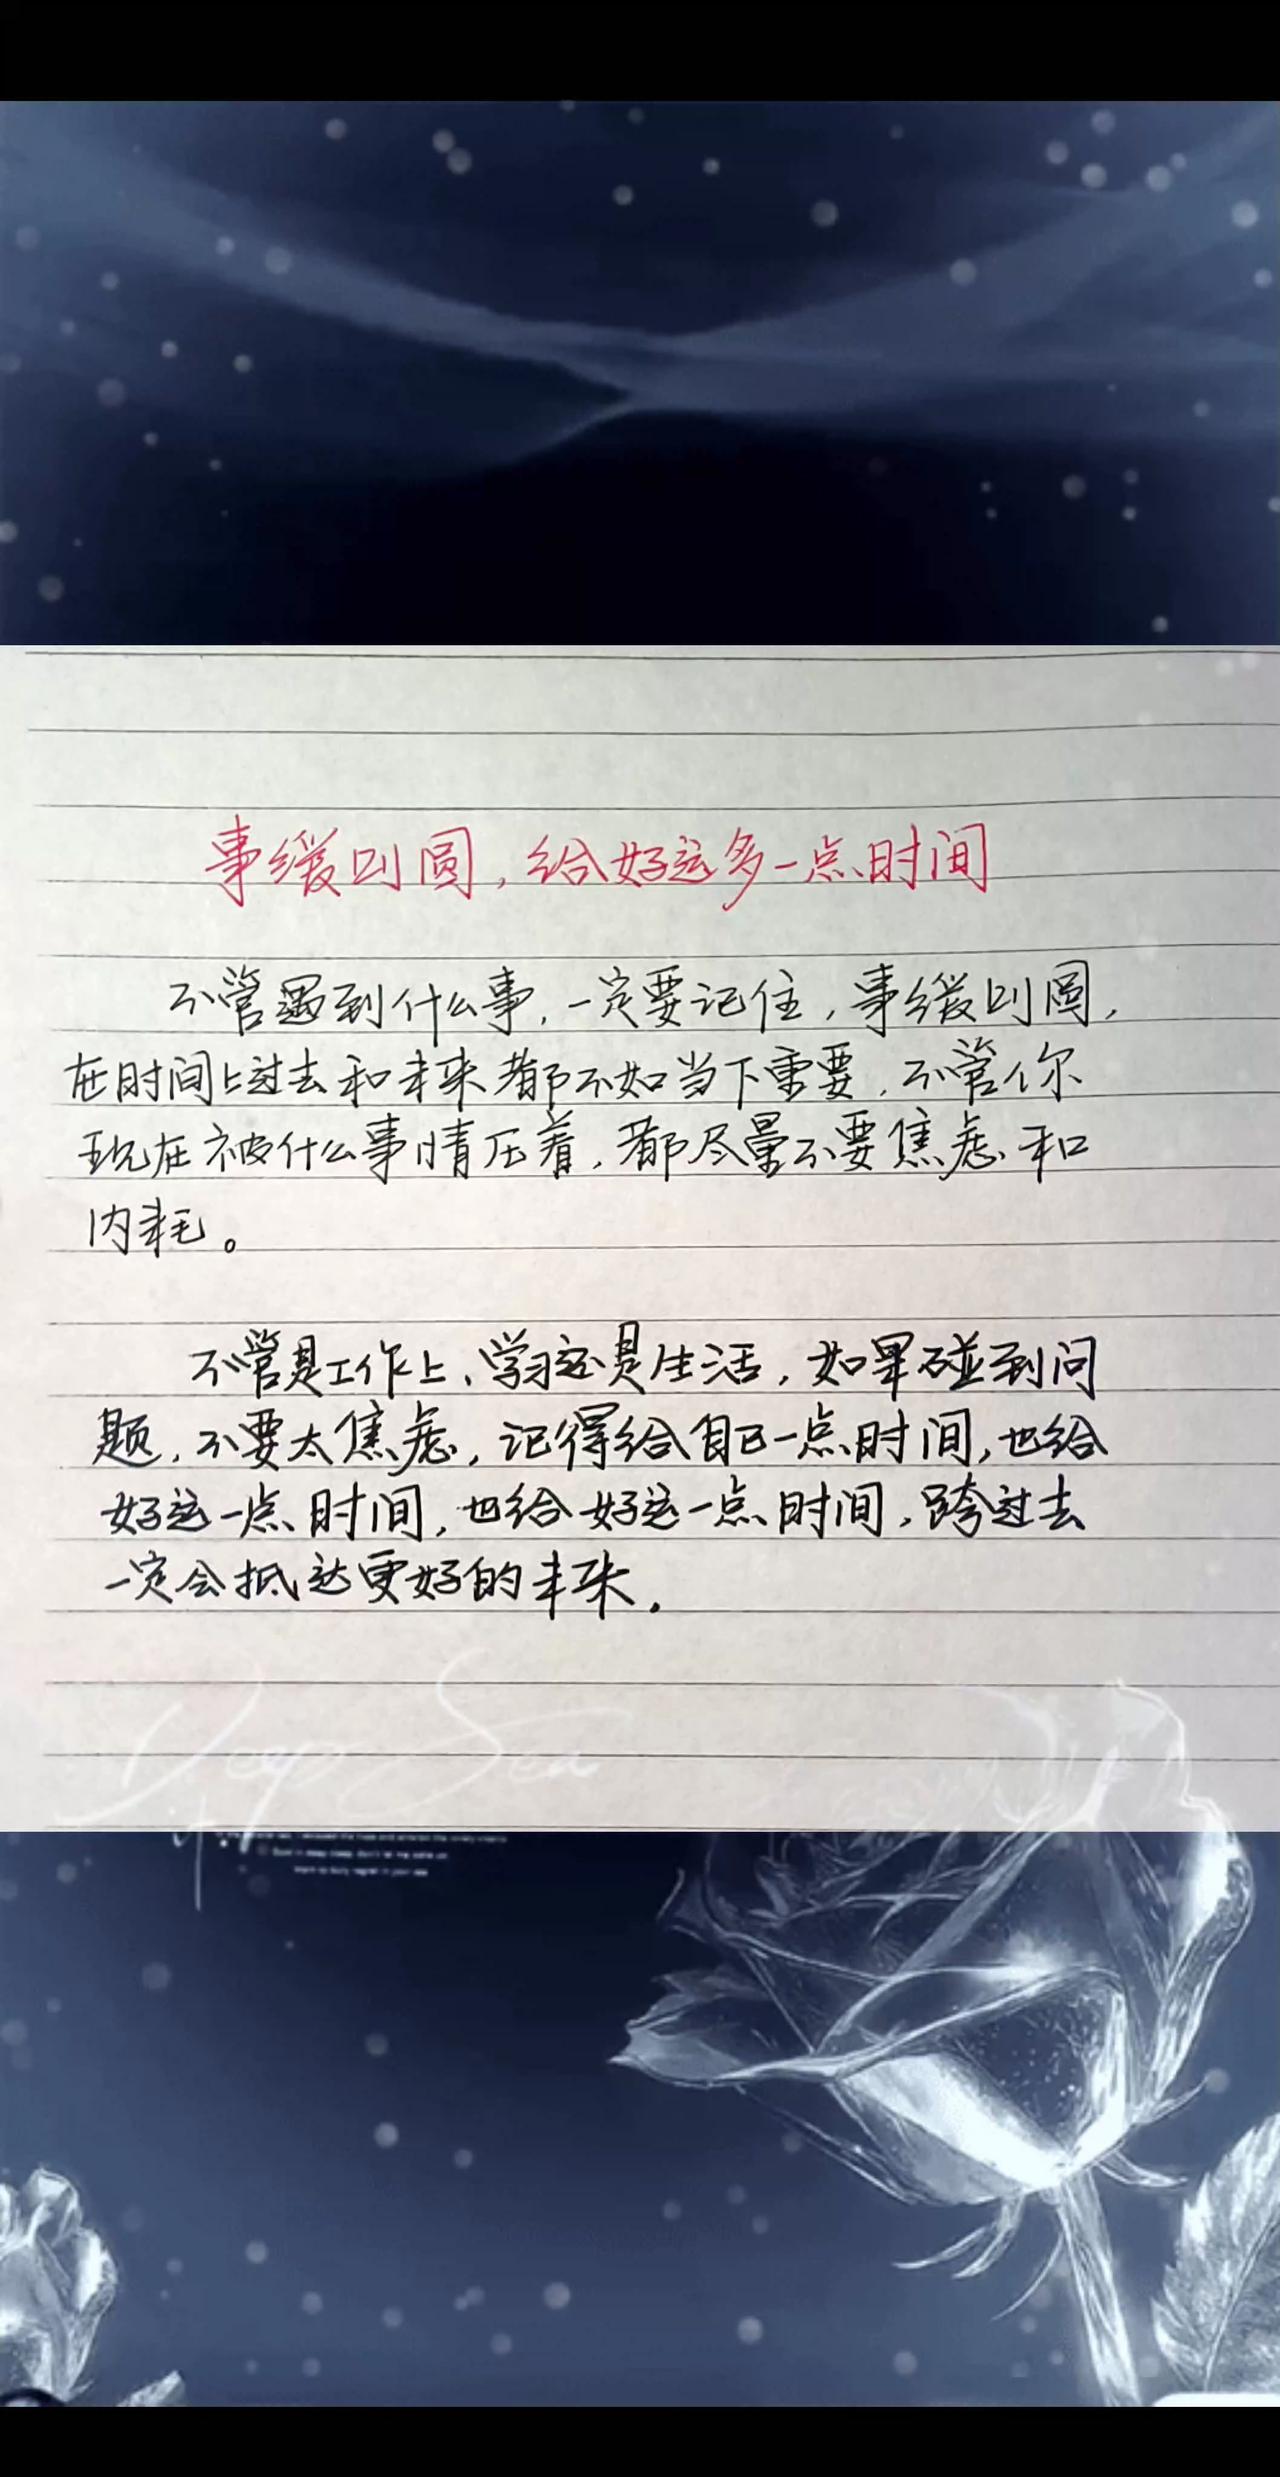 事缓则圆，给好运多一点时间
不管遇到什么事，一定要记住，事缓则圆，
在时间上过去和未来都不如当下重要，不管你
现在被什么事情压着，都尽量不要焦虑和
内耗。
不管是工作上、学习还是生活，如果碰到问
题，不要太焦虑，记得给自己一点时间，也给
好运一点时间，也给好运一点时间，跨过去
一定会抵达更好的未来.
Deep Sea